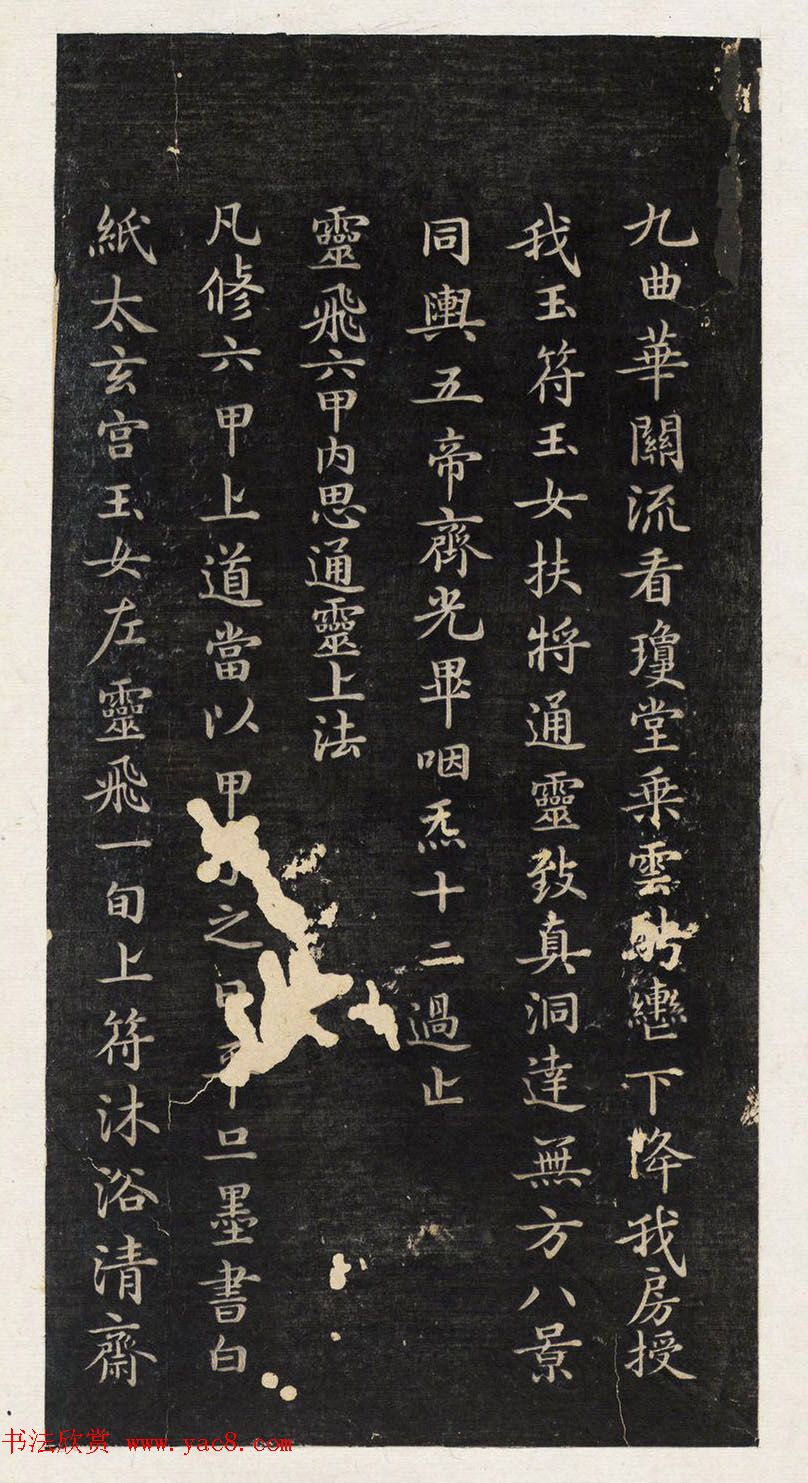 九曲華關流看瓊堂乘雲轡下降我房授
我玉符玉女扶將通靈致真洞達無方八景
同輿五帝齊光畢咽炁十二過止
靈飛六甲內思通靈上法
凡修六甲上道當以甲之日平旦墨書白
紙太玄宮玉女左靈飛一旬上符沐浴清齋
书法欣赏 www.yac8.com